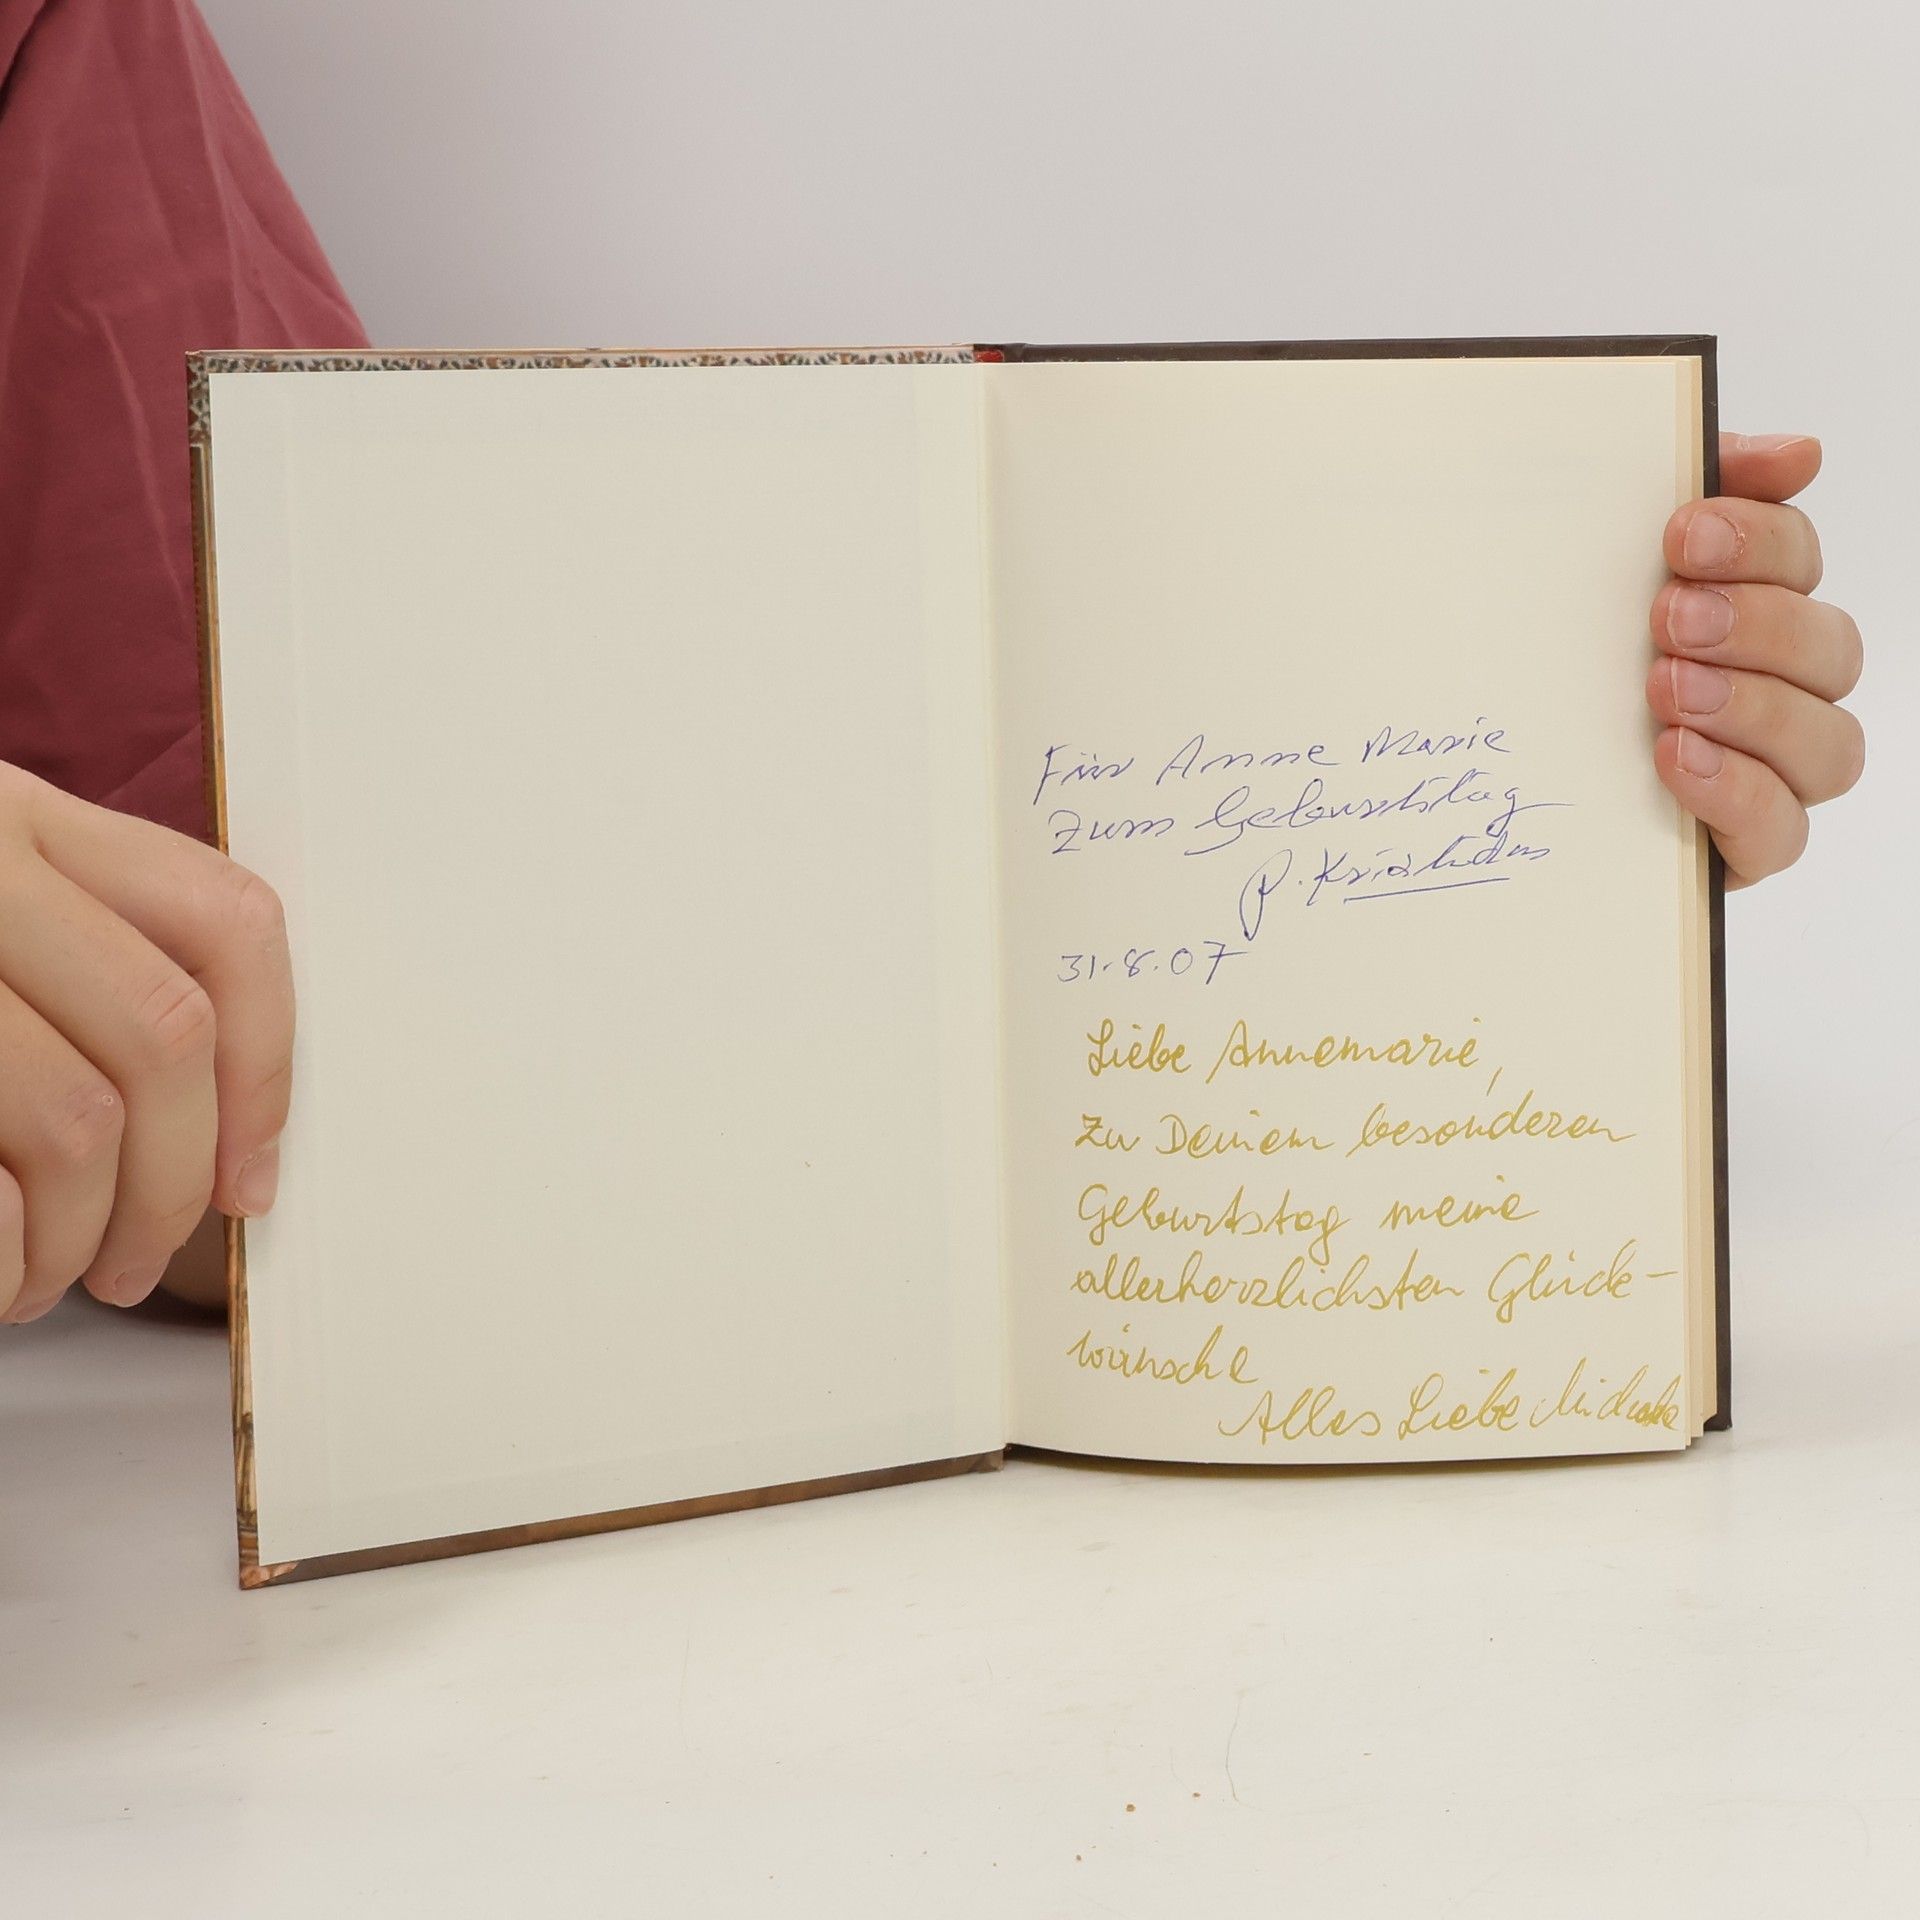 Für Anne Marie
Zum Geburtstag
P.
31.8.07
Liebe Annemarie,
zu Deinem besonderen
Geburtstag meine
allerherzlichsten Glück-
wünsche
Alles Liebe